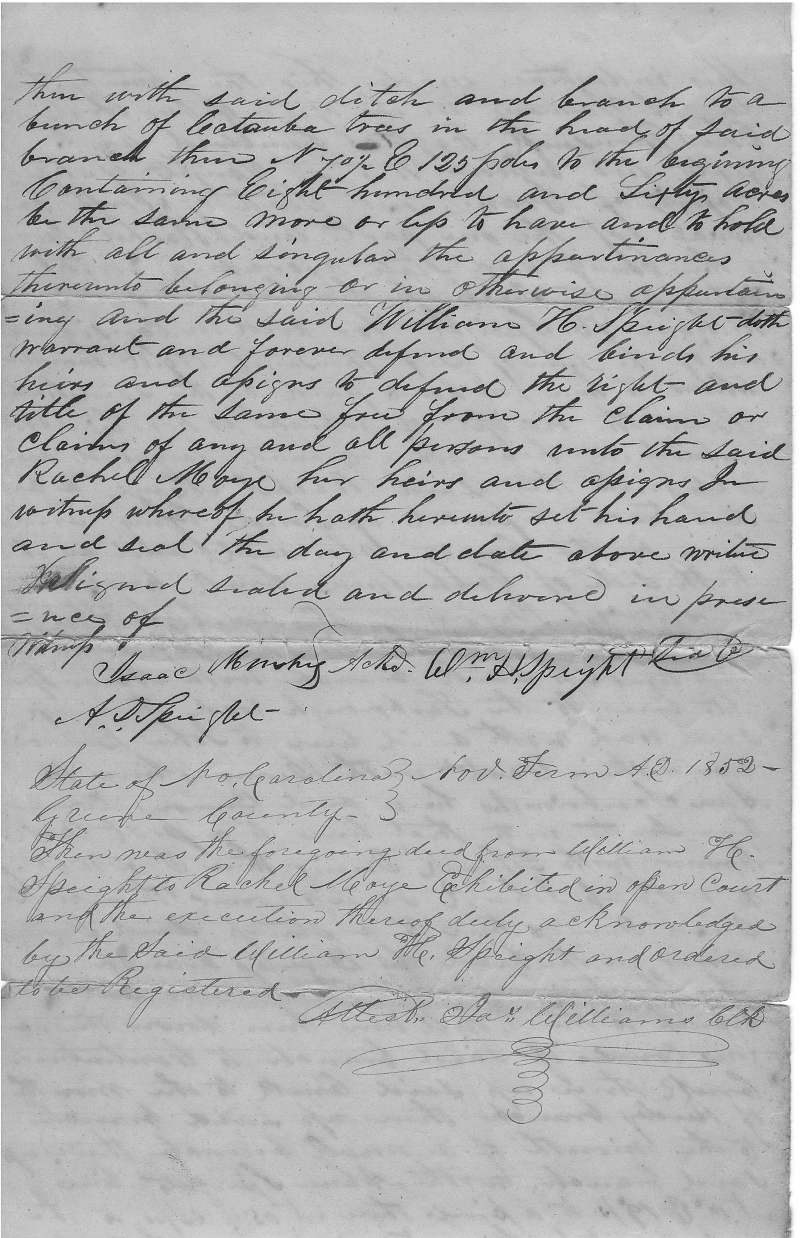 then with said ditch and branch to a
bunch of Catauba trees in the head of said
branch then N 70½ E 125 poles to the begining
Containing Eight hundred and Sixty acres
be the same more or less to have and to hold
with all and singular the appurtinances
thereunto belonging or in otherwise appurtain
=ing and the said William H. Speight doth
warrant and forever defend and binds his
heirs and assigns to defend the right and
title of the same free from the claim or
claims of any and all persons unto the said
Rachel Moye her heirs and assigns In
witness whereof he hath hereunto set his hand
and seal the day and date above writen
Signed sealed and delivered in prese
=nce of
Witness
Isaac } Ackd. Wm. H. Speight Seal
A. D. Speight
State of No. Carolina } Nov. Term A.D. 1852 -
Greene County - }
Then was the foregoing deed from William H.
Speight to Rachel Moye Exhibited in open Court
and the execution thereof duly acknowledged
by the said William H. Speight and ordered
to be Registered
Attest Jas. Williams Clk